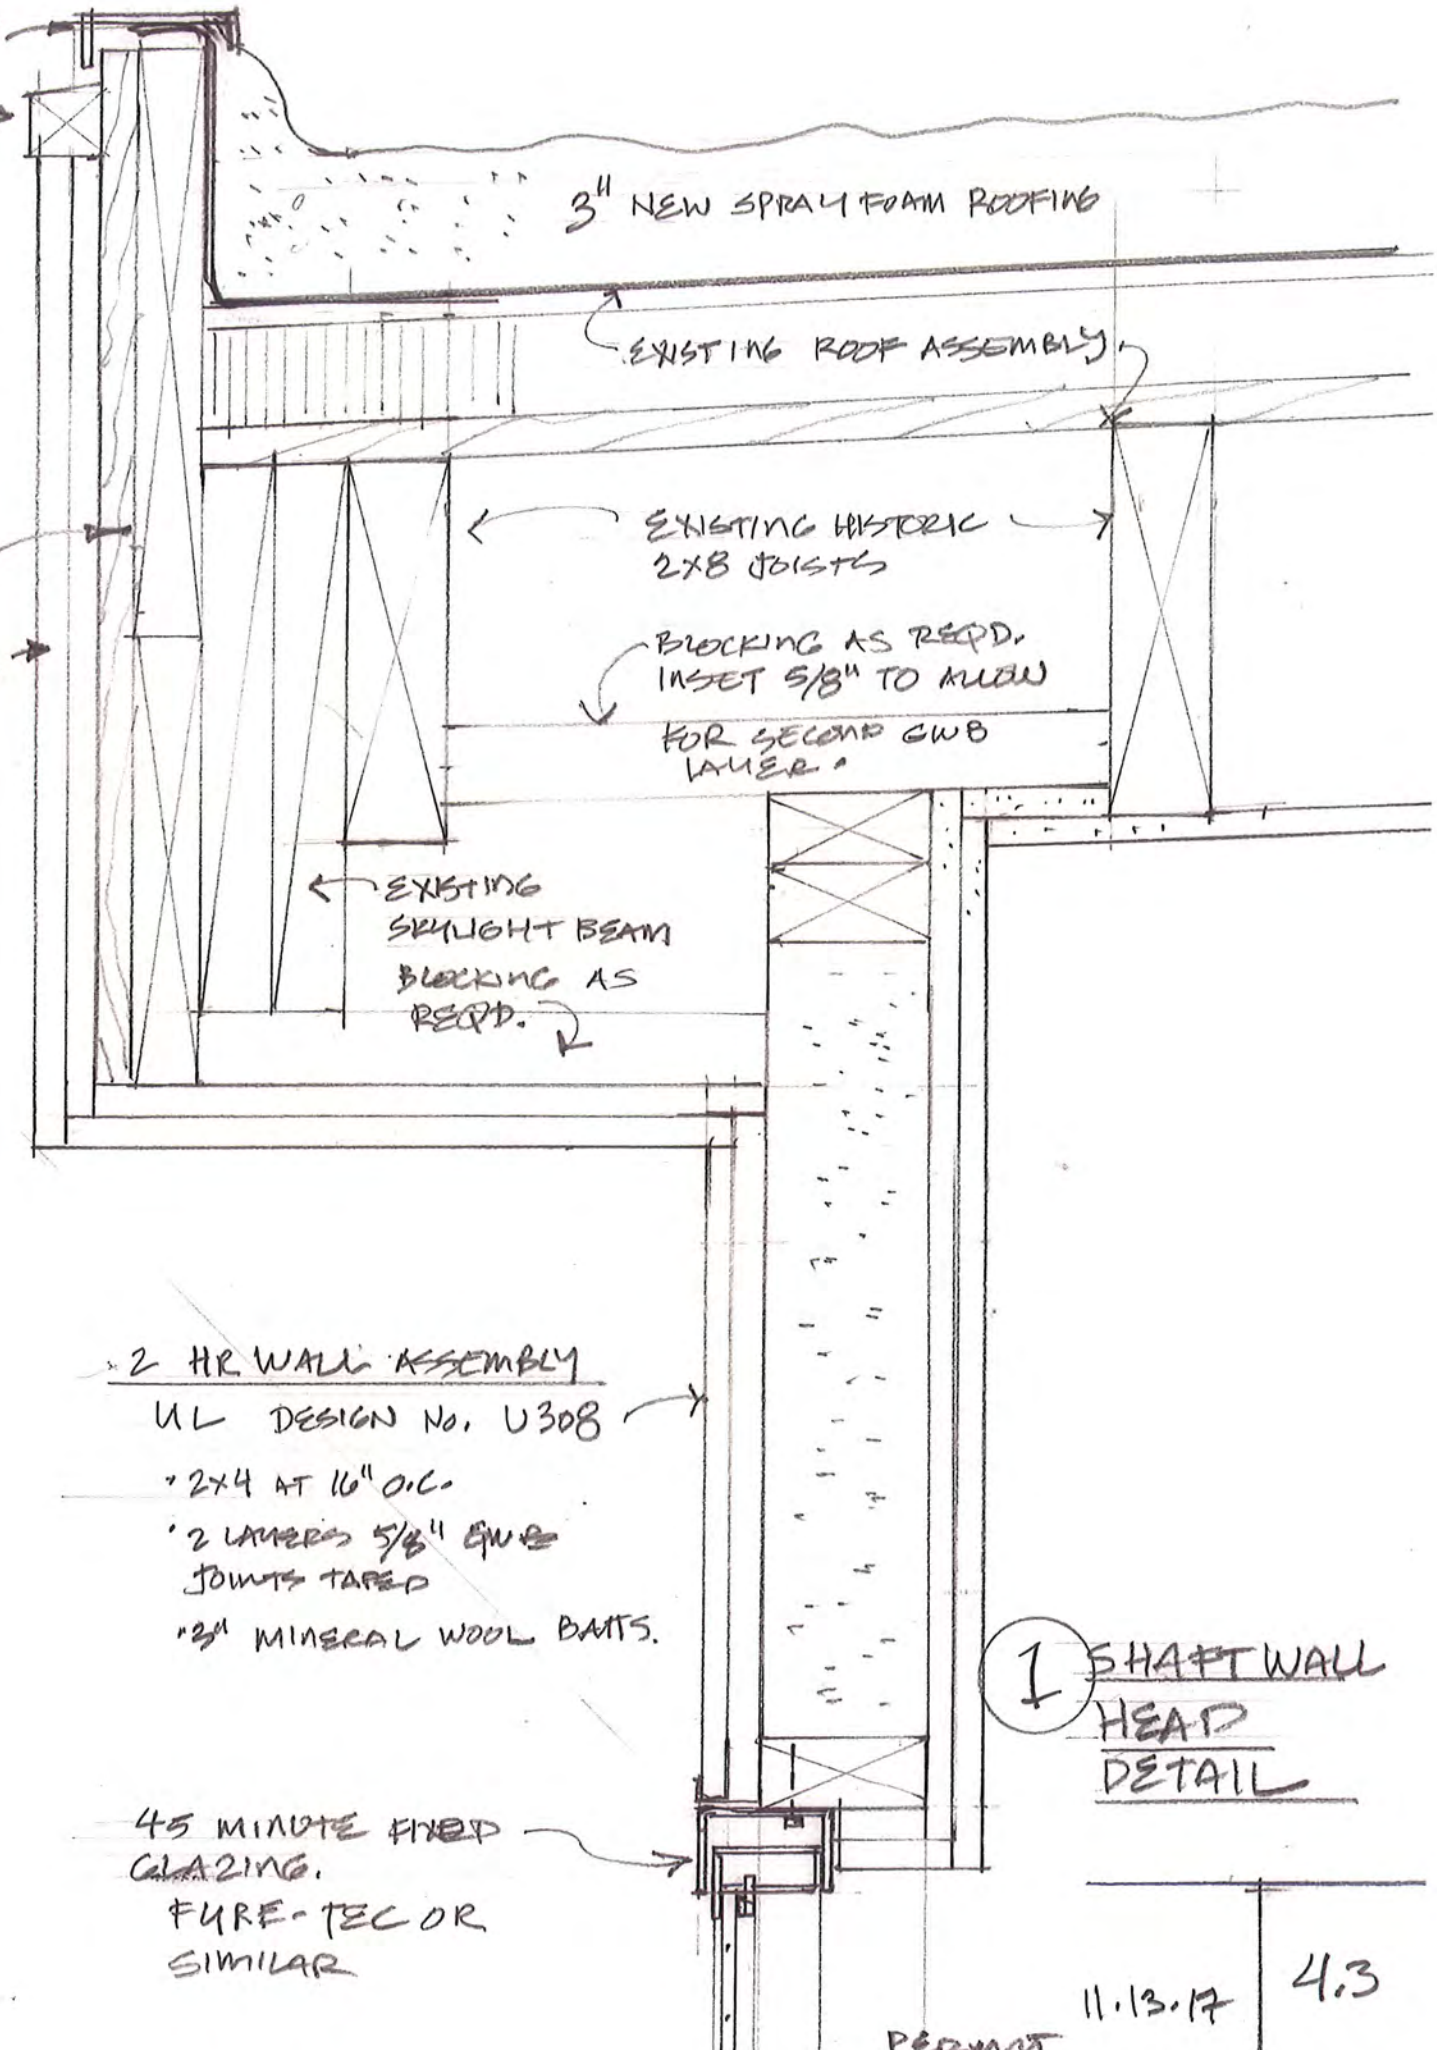 3" NEW SPRAY FOAM ROOFING
EXISTING ROOF ASSEMBLY
EXISTING HISTORIC
2X8 JOISTS
BLOCKING AS REQD.
INSET 5/8" TO ALLOW
FOR SECOND GWB
LAYER.
EXISTING
SKYLIGHT BEAM
BLOCKING AS
REQD.
2 HR WALL ASSEMBLY
UL DESIGN No. U308
• 2X4 AT 16" O.C.
• 2 LAYERS 5/8" GWB
JOINTS TAPED
• 3" MINERAL WOOL BATTS.
1 SHAFT WALL
HEAD
DETAIL
45 MINUTE FIXED
GLAZING.
FYRE-TEC OR
SIMILAR
11.13.17
4.3
PERMIT